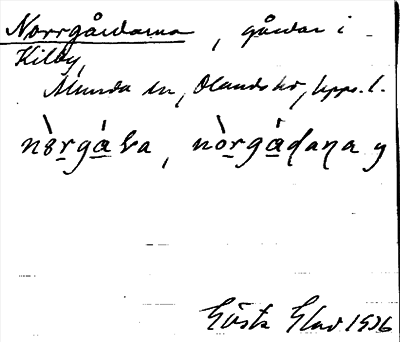 Norrgårdarna, gårdar i
Kilby,
Alunda sn, Olands hd, Upps. l.
nòrgàḷa, nòrgàdaṇa y
Gösta Elav 1936